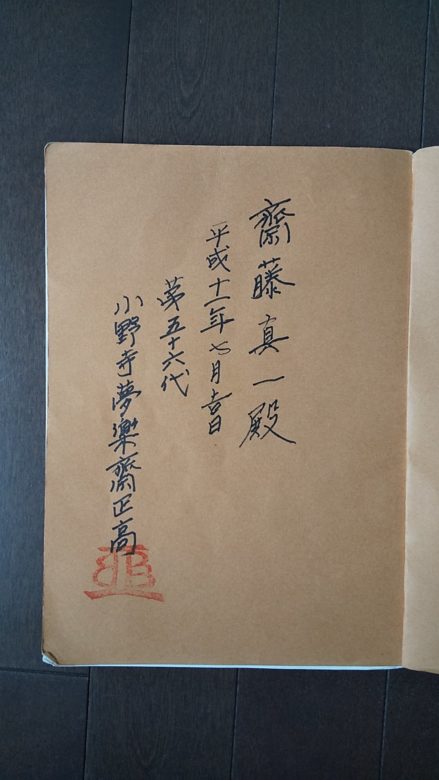 齋藤真一殿
平成十一年七月吉日
第五十六代
小野寺夢樂齋正高